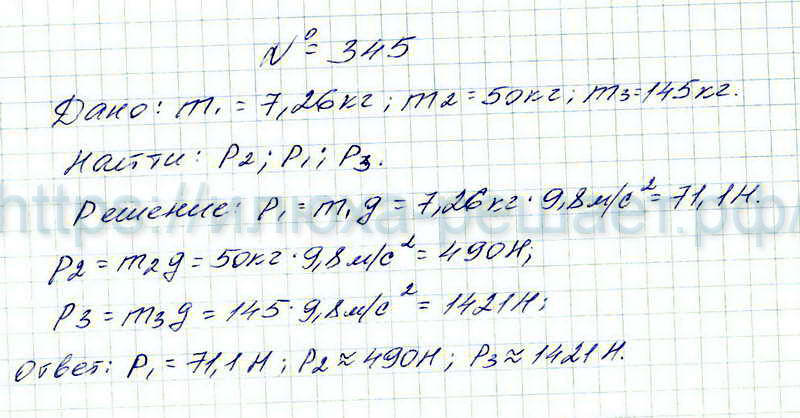 № = 345
Дано: m₁ = 7,26кг; m2 = 50кг; m3=145кг.
Найти: P2; P₁; P3.
Решение: P₁ = m₁g = 7,26кг · 9,8м/с² = 71,1Н.
P2 = m2g = 50кг · 9,8м/с² = 490Н;
P3 = m3g = 145 · 9,8м/с² = 1421Н;
Ответ: P₁ = 71,1Н; P2 ≈ 490Н; P3 ≈ 1421Н.
http://илюха-решает.рф/